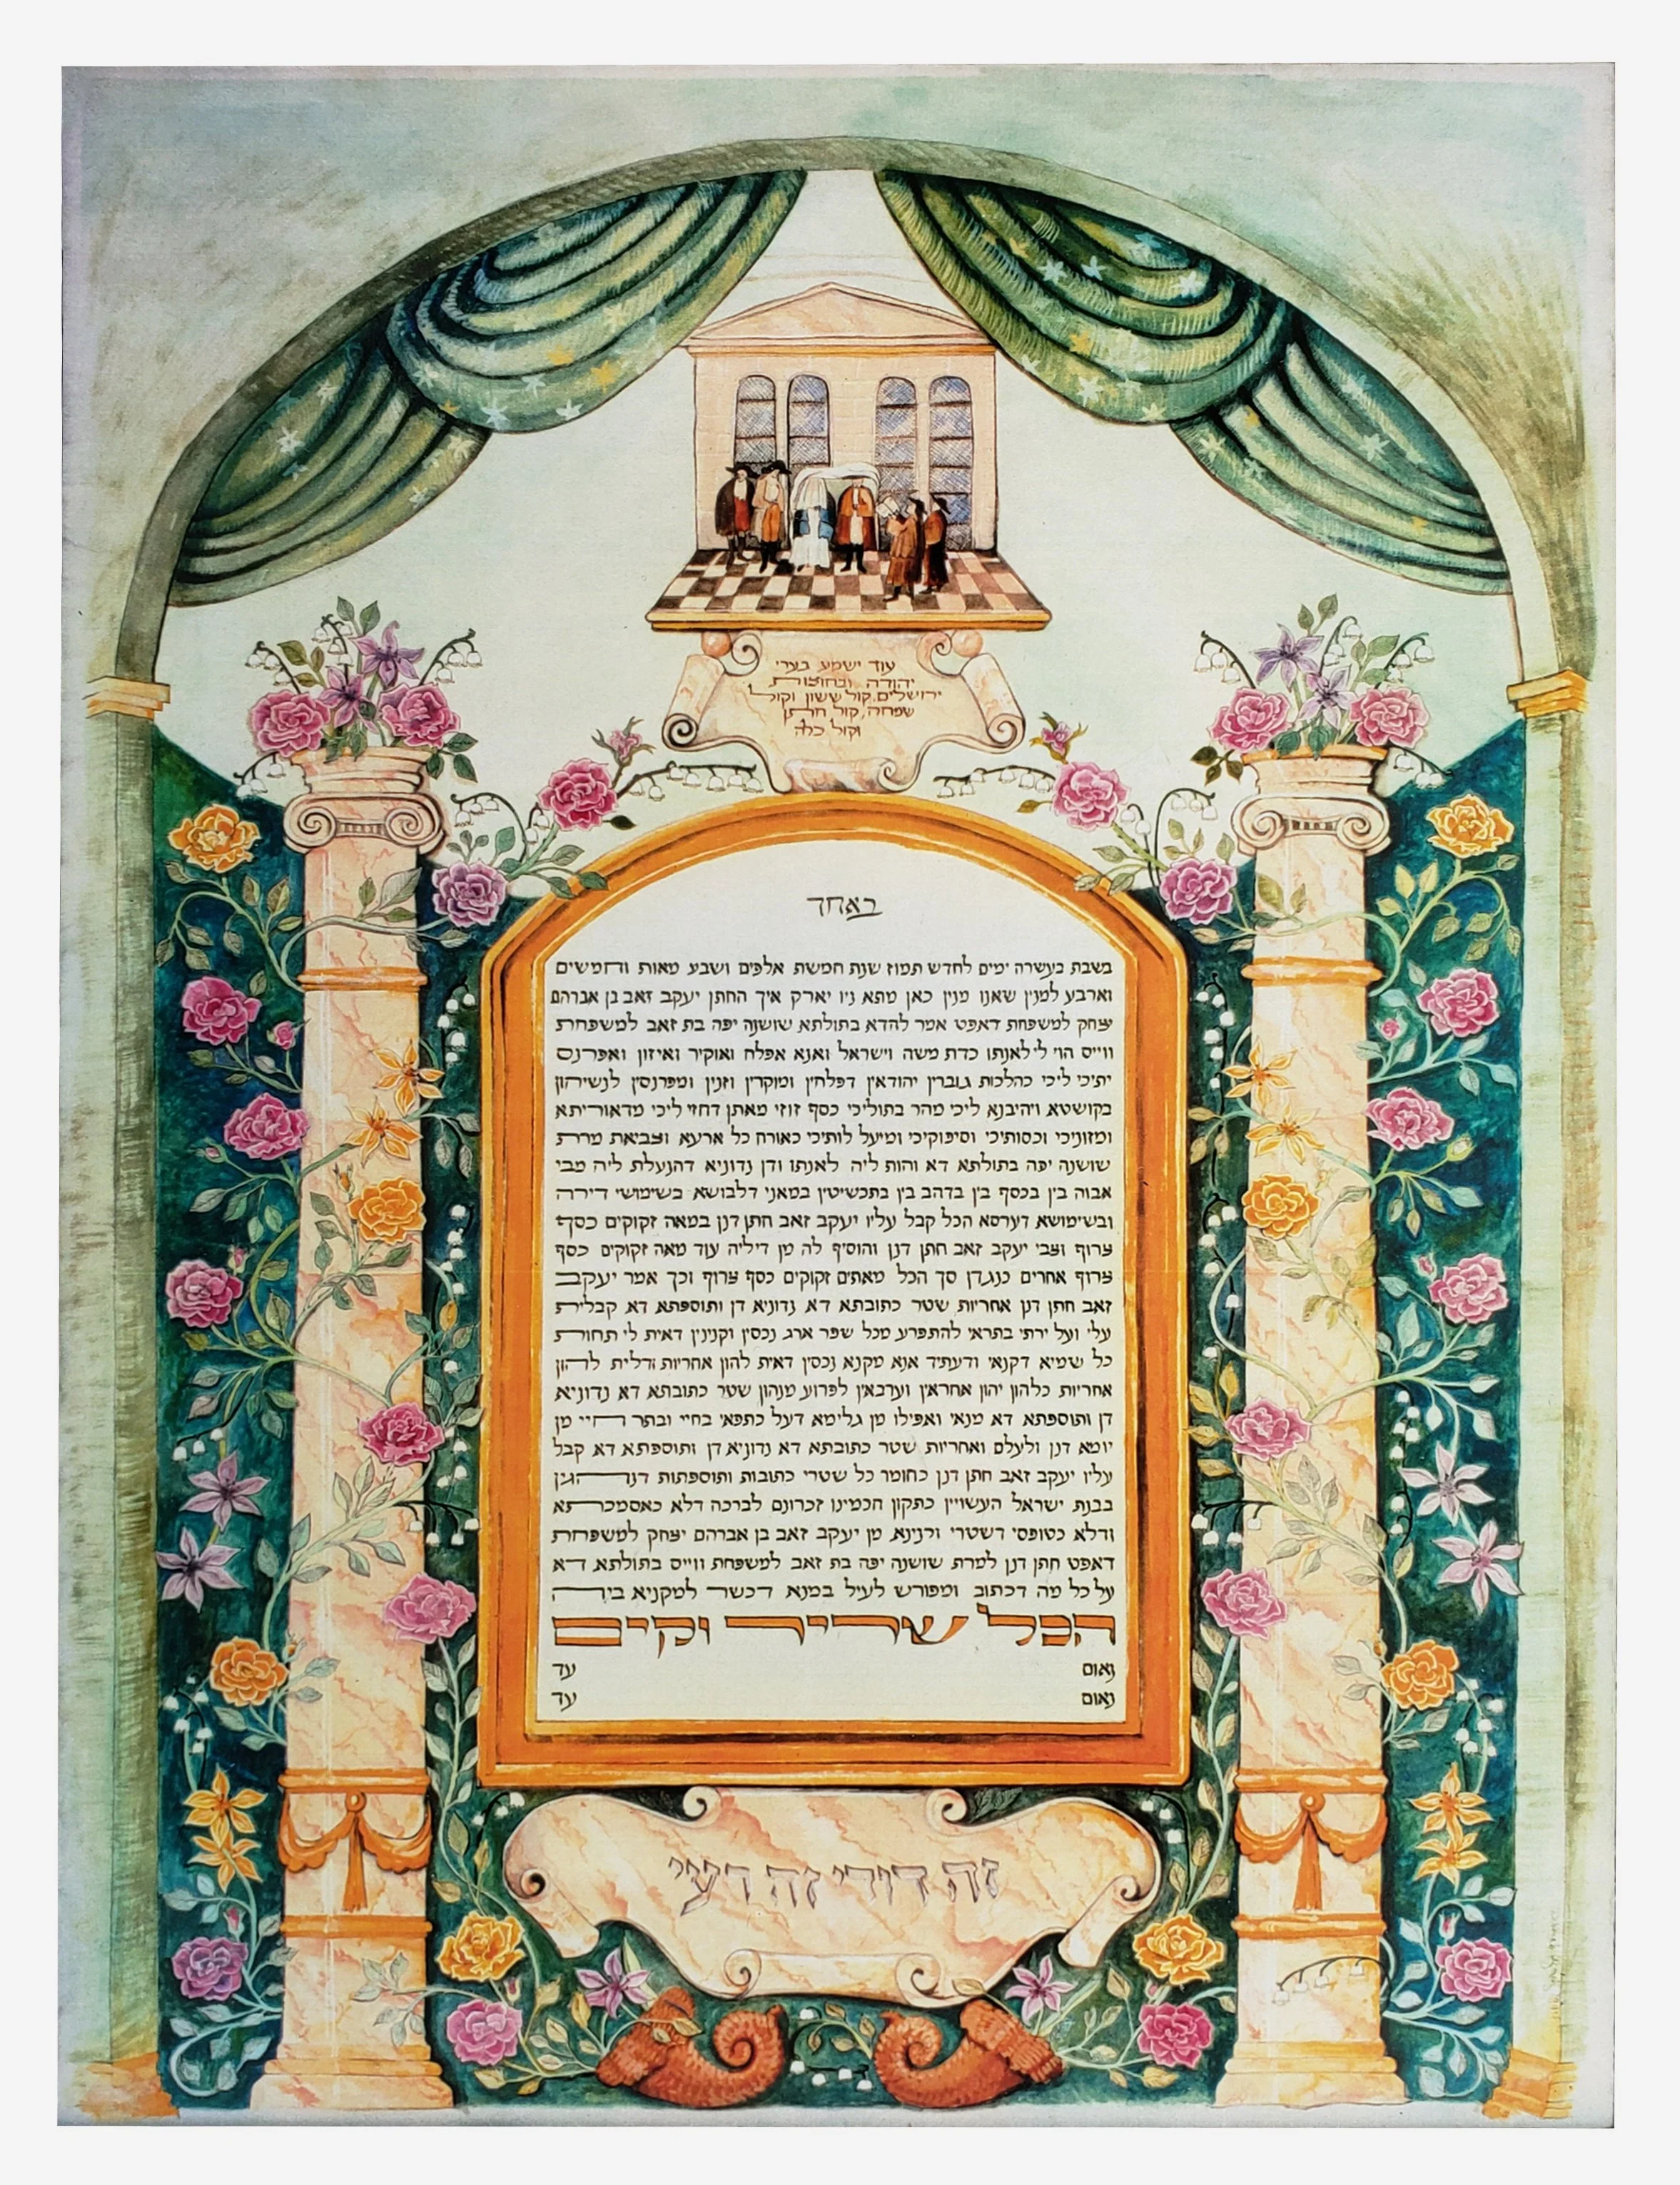 עוד ישמע בערי
יהודה ובחוצות
ירושלים קול ששון וקול
שמחה, קול חתן
וקול כלה
באחד
בשבת בעשרה ימים לחדש תמוז שנת חמשת אלפים ושבע מאות וחמשים
וארבע למנין שאנו מנין כאן מתא ניו יארק איך החתן יעקב זאב בן אברהם
יצחק למשפחת דאפט אמר להדא בתולתא שושנה יפה בת זאב למשפחת
ווייס הוי לי לאנתו כדת משה וישראל ואנא אפלח ואוקיר ואיזון ואפרנס
יתיכי ליכי כהלכות גוברין יהודאין דפלחין ומוקרין וזנין ומפרנסין לנשיהון
בקושטא ויהיבנא ליכי מהר בתוליכי כסף זוזי מאתן דחזי ליכי מדאוריתא
ומזוניכי וכסותיכי וסיפוקיכי ומיעל לותיכי כאורח כל ארעא וצביאת מרת
שושנה יפה בתולתא דא והות ליה לאנתו ודן נדוניא דהנעלת ליה מבי
אבוה בין בכסף בין בדהב בין בתכשיטין במאני דלבושא בשימושי דירה
ובשימושא דערסא הכל קבל עליו יעקב זאב חתן דנן במאה זקוקים כסף
צרוף וצבי יעקב זאב חתן דנן והוסיף לה מן דיליה עוד מאה זקוקים כסף
צרוף אחרים כנגדן סך הכל מאתים זקוקים כסף צרוף וכך אמר יעקב
זאב חתן דנן אחריות שטר כתובתא דא נדוניא דן ותוספתא דא קבלית
עלי ועל ירתי בתראי להתפרע מכל שפר ארג נכסין וקנינין דאית לי תחות
כל שמיא דקנאי ודעתיד אנא מקנא נכסין דאית להון אחריות ודלית להון
אחריות כלהון יהון אחראין וערבאין לפרוע מנהון שטר כתובתא דא נדוניא
דן ותוספתא דא מנאי ואפילו מן גלימא דעל כתפאי בחיי ובתר חיי מן
יומא דנן ולעלם ואחריות שטר כתובתא דא נדוניא דן ותוספתא דא קבל
עליו יעקב זאב חתן דנן כחומר כל שטרי כתובות ותוספתות דנהגין
בבנת ישראל העשויין כתקון חכמינו זכרונם לברכה דלא כאסמכתא
ודלא כטופסי דשטרי וקנינא מן יעקב זאב בן אברהם יצחק למשפחת
דאפט חתן דנן למרת שושנה יפה בת זאב למשפחת ווייס בתולתא דא
על כל מה דכתוב ומפורש לעיל במנא דכשר למקניא ביה
הכל שריר וקים
נאום עד
נאום עד
זה דודי וזה רעי